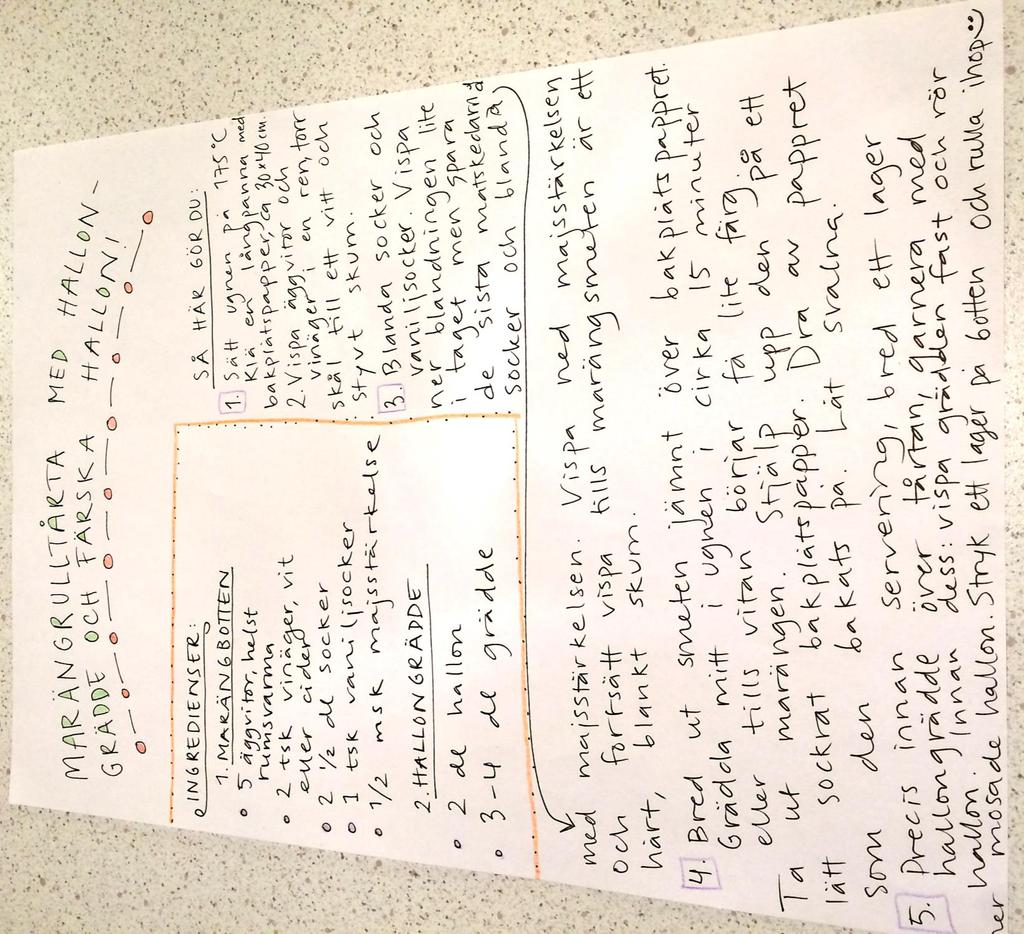 MARÄNGRULLTÅRTA MED HALLON-
GRÄDDE OCH FÄRSKA HALLON!
INGREDIENSER:
1. MARÄNGBOTTEN
• 5 äggvitor, helst
rumsvarma
• 2 tsk vinäger, vit
eller cider
• 2 1/2 dc socker
• 1 tsk vaniljsocker
• 1/2 msk majsstärkelse
2. HALLONGRÄDDE
• 2 dc hallon
• 3-4 dc grädde
SÅ HÄR GÖR DU:
1. Sätt ugnen på 175°C
Klä en långpanna med
bakplåtspapper, ca 30x40 cm.
2. Vispa äggvitor och
vinäger i en ren, torr
skål till ett vitt och
styvt skum.
3. Blanda socker och
vaniljsocker. Vispa
ner blandningen lite
i taget men spara
de sista matskedarna
socker och blanda
med majsstärkelsen. Vispa ned majsstärkelsen
och fortsätt vispa tills marängsmeten är ett
hårt, blankt skum.
4. Bred ut smeten jämnt över bakplåtspappret.
Grädda mitt i ugnen i cirka 15 minuter
eller tills vitan börjar få lite färg.
Ta ut marängen. Stjälp upp den på ett
lätt sockrat bakplåtspapper. Dra av pappret
som den bakats på. Låt svalna.
5. Precis innan servering, bred ett lager
hallongrädde över tårtan, garnera med
hallon. Innan dess: vispa grädden fast och rör
ner mosade hallon. Stryk ett lager på botten och rulla ihop